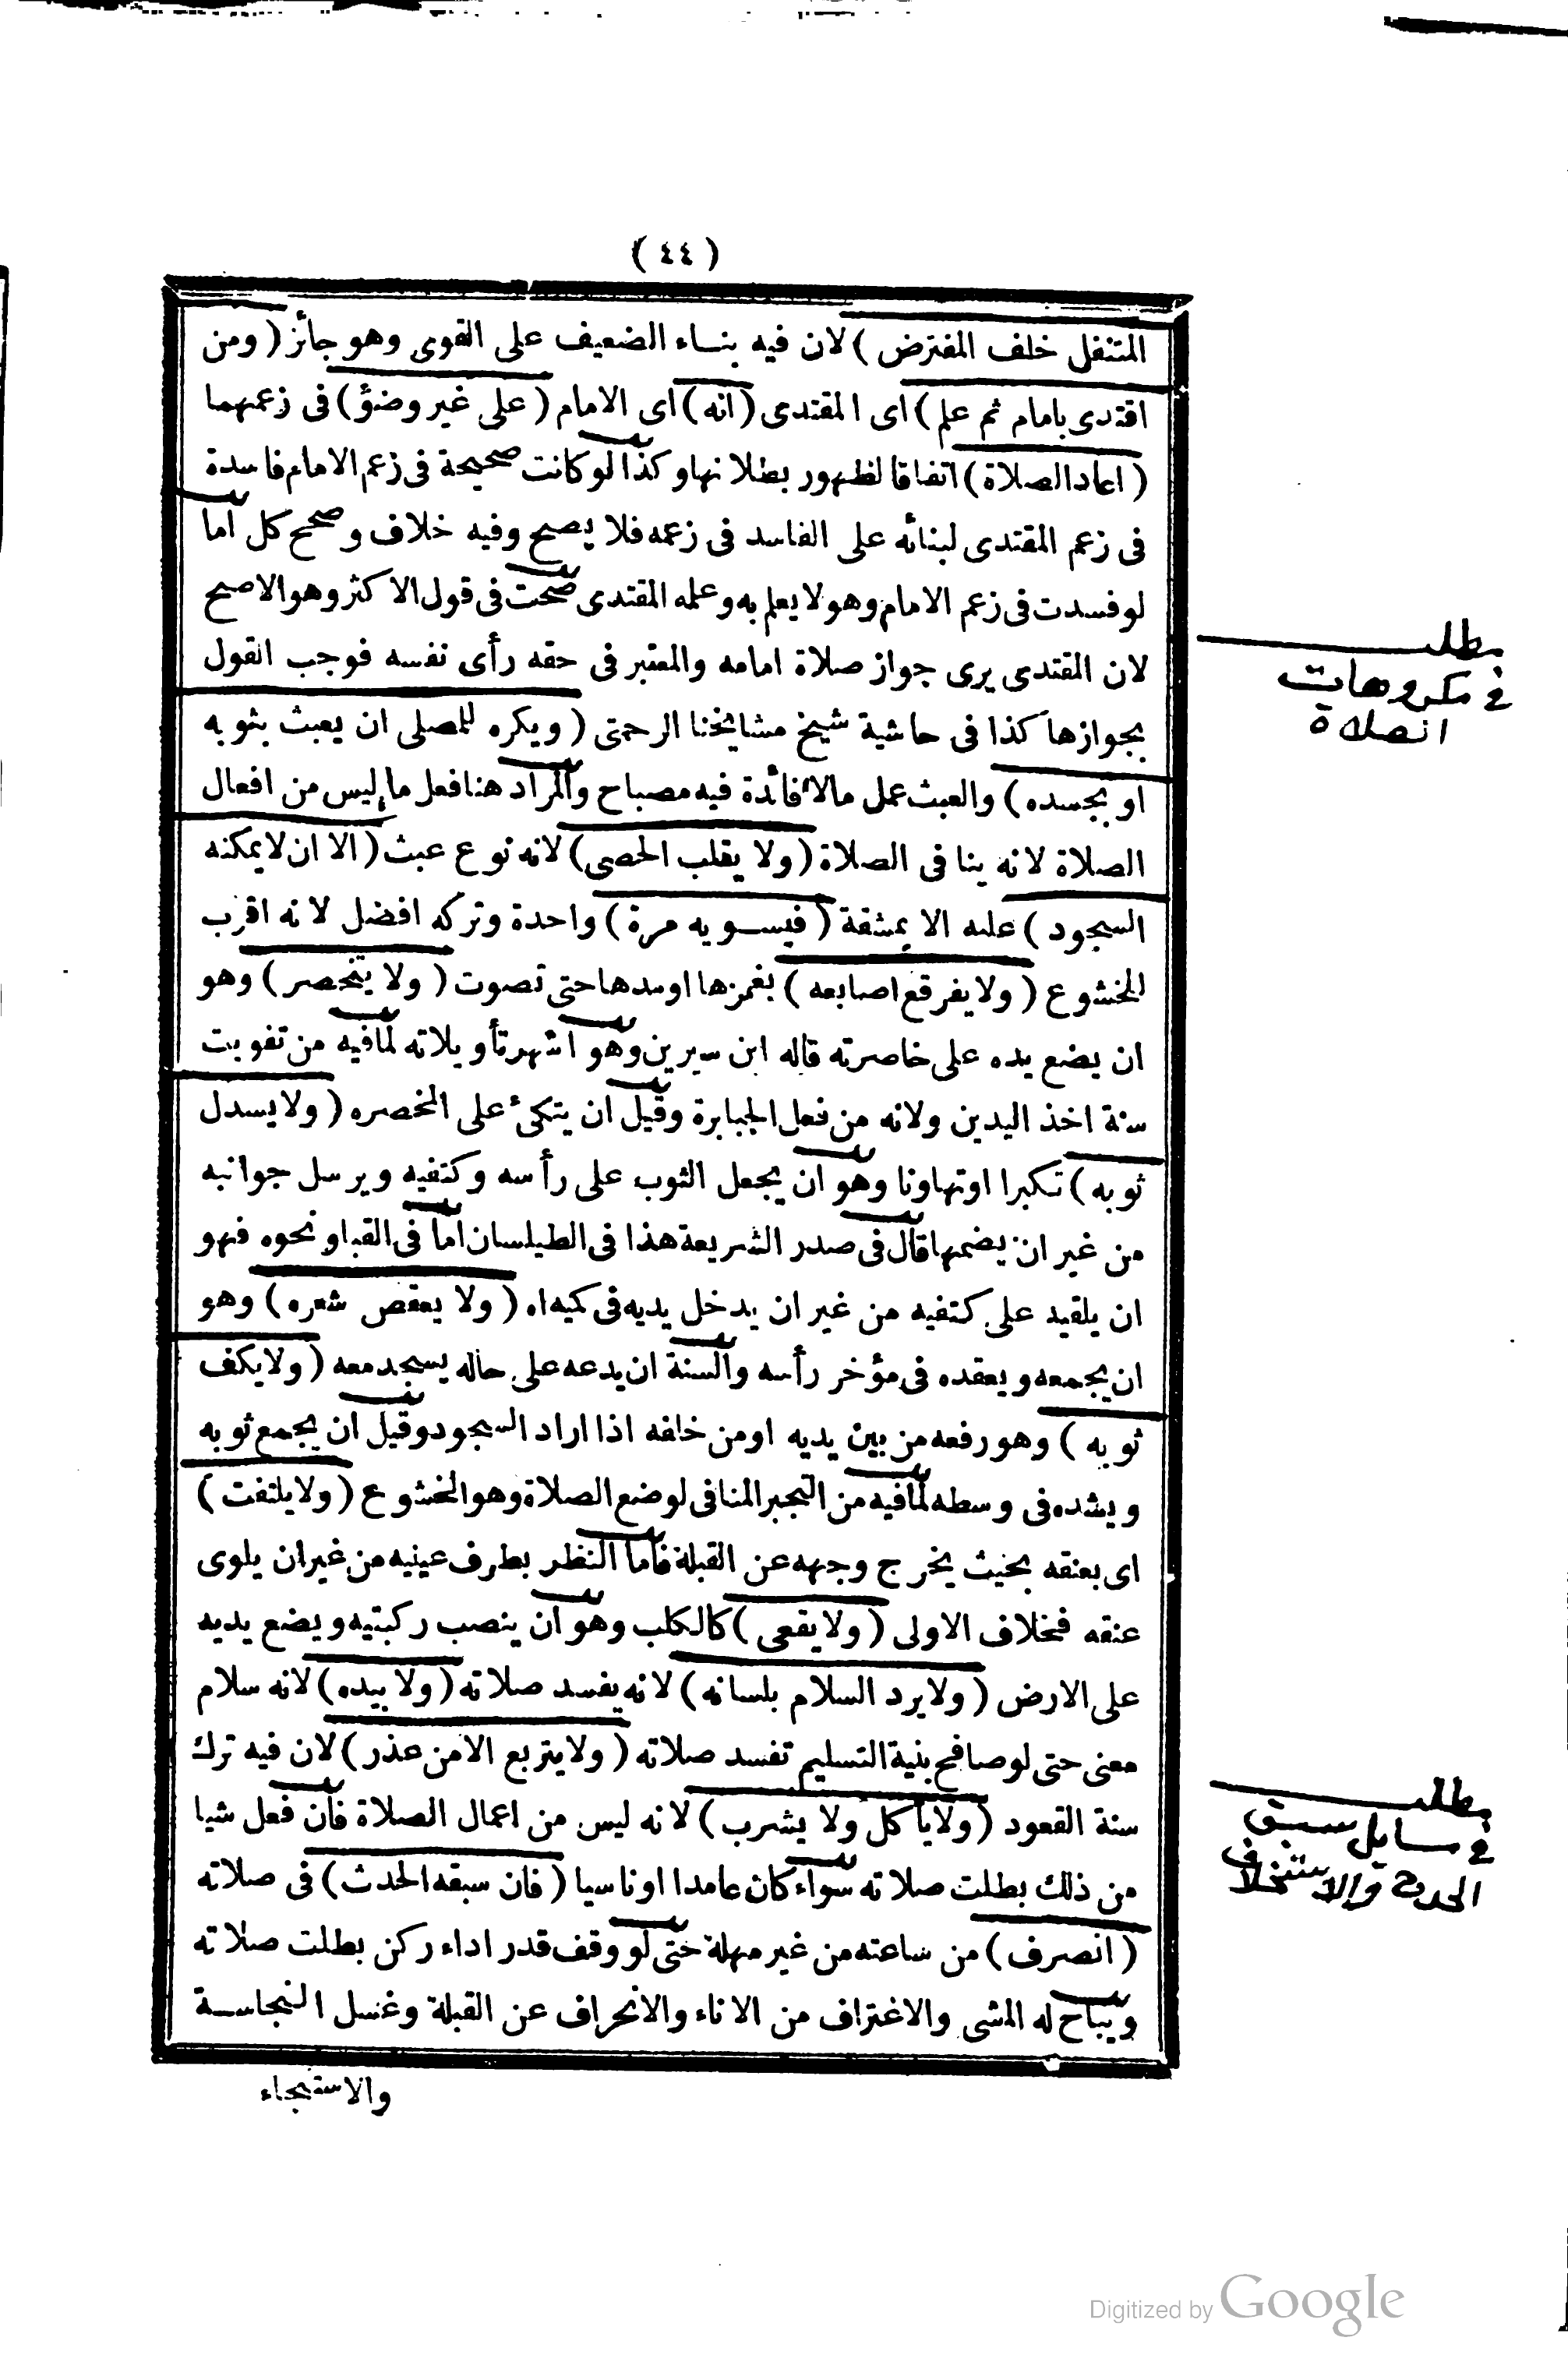 ( ٤٤ )
المتنفل خلف المفترض ) لان فيه بنساء الضعيف على القوى وهو جائز ( ومن
اقتدى بامام ثم علم ) اى المقتدى ( انه ) اى الامام ( على غير وضؤ ) فى زعمهما
( اعاد الصلاة ) اتفاقا لظهور بطلانها وكذا لو كانت صحيحة فى زعم الامام فاسدة
فى زعم المقتدى لبنائه على الفاسد فى زعمه فلا يصح وفيه خلاف وصحح كل اما
لو فسدت فى زعم الامام وهو لا يعلم به وعلمه المقتدى صحت فى قول الاكثر وهو الاصح
لان المقتدى يرى جواز صلاة امامه والمعتبر فى حقه رأى نفسه فوجب القول
بجوازها كذا فى حاشية شيخ مشايخنا الرحمتى ( ويكره للمصلى ان يعبث بثوبه
او بجسده ) والعبث عمل مالا فائدة فيه مصباح والمراد هنا فعل ما ليس من افعال
الصلاة لانه ينافى الصلاة ( ولا يقلب الحصى ) لانه نوع عبث ( الا ان لا يمكنه
السجود ) عليه الا بمشقة ( فيسويه مرة ) واحدة وتركه افضل لانه اقرب
للخشوع ( ولا يفرقع اصابعه ) بغمزها او مدها حتى تصوت ( ولا يتخصر ) وهو
ان يضع يده على خاصرته قاله ابن سيرين وهو اشهر تأويلاته لما فيه من تفويت
سنة اخذ اليدين ولانه من فعل الجبابرة وقيل ان يتكئ على المخصره ( ولا يسدل
ثوبه ) تكبرا او تهاونا وهو ان يجعل الثوب على رأسه وكتفيه ويرسل جوانبه
من غير ان يضمها قال فى صدر الشريعة هذا فى الطيلسان اما فى القبا ونحوه فهو
ان يلقيه على كتفيه من غير ان يدخل يديه فى كميه اه ( ولا يعقص شعره ) وهو
ان يجمعه ويعقده فى مؤخر رأسه والسنة ان يدعه على حاله يسجد معه ( ولا يكف
ثوبه ) وهو رفعه من بين يديه او من خلفه اذا اراد السجود وقيل ان يجمع ثوبه
ويشده فى وسطه لما فيه من التجبر المنافى لوضع الصلاة وهو الخشوع ( ولا يلتفت )
اى بعنقه بحيث يخرج وجهه عن القبلة فاما النظر بطرف عينيه من غير ان يلوى
عنقه فخلاف الاولى ( ولا يقعى ) كالكلب وهو ان ينصب ركبتيه ويضع يديه
على الارض ( ولا يرد السلام بلسانه ) لانه يفسد صلاته ( ولا بيده ) لانه سلام
معنى حتى لو صافح بنية التسليم تفسد صلاته ( ولا يتربع الا من عذر ) لان فيه ترك
سنة القعود ( ولا يأكل ولا يشرب ) لانه ليس من اعمال الصلاة فان فعل شيا
من ذلك بطلت صلاته سواء كان عامدا او ناسيا ( فان سبقه الحدث ) فى صلاته
( انصرف ) من ساعته من غير مهلة حتى لو وقف قدر اداء ركن بطلت صلاته
ويباح له المشى والاغتراف من الاناء والانحراف عن القبلة وغسل النجاسة
والاستنجاء
مطلب
فى مكروهات
الصلاة
مطلب
فى مسايل سبق
الحدث والاستخلاف
Digitized by Google